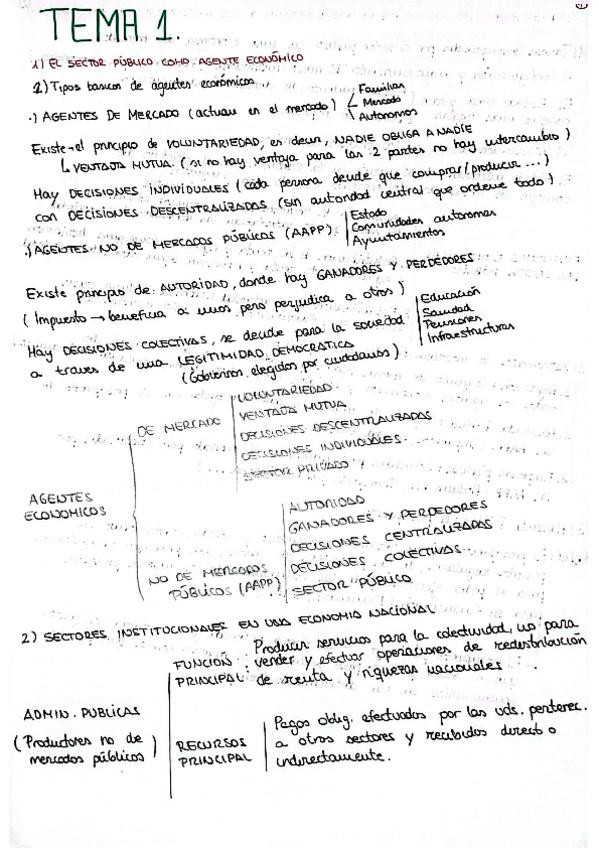 TEMA 1.
1) EL SECTOR PÚBLICO COMO AGENTE ECONÓMICO
1) Tipos basicos de agentes económicos
·) AGENTES DE MERCADO (actuan en el mercado)
Familias
Mercado
Autonomos
Existe el principio de VOLUNTARIEDAD, es decir, NADIE OBLIGA A NADIE
↳ VENTAJA MUTUA (si no hay ventaja para las 2 partes no hay intercambio)
Hay DECISIONES INDIVIDUALES (cada persona decide que comprar/producir ...)
con DECISIONES DESCENTRALIZADAS (sin autoridad central que ordene todo)
·) AGENTES NO DE MERCADOS PÚBLICOS (AAPP)
Estado
Comunidades autonomas
Ayuntamientos
Existe principio de AUTORIDAD, donde hay GANADORES Y PERDEDORES
(Impuesto → beneficia a unos pero perjudica a otros)
Hay DECISIONES COLECTIVAS, se decide para la sociedad
a traves de una LEGITIMIDAD DEMOCRATICA
(Gobiernos elegidos por ciudadanos)
Educación
Sanidad
Pensiones
Infraestructuras
AGENTES
ECONOMICOS
DE MERCADO
VOLUNTARIEDAD
VENTAJA MUTUA
DECISIONES DESCENTRALIZADAS
DECISIONES INDIVIDUALES
SECTOR PRIVADO
NO DE MERCADOS
PÚBLICOS (AAPP)
AUTORIDAD
GANADORES Y PERDEDORES
DECISIONES CENTRALIZADAS
DECISIONES COLECTIVAS
SECTOR PÚBLICO
2) SECTORES INSTITUCIONALES EN UNA ECONOMIA NACIONAL
ADMIN. PUBLICAS
(Productores no de
mercados públicos)
FUNCION
PRINCIPAL
Producir servicios para la colectividad, no para
vender y efectuar operaciones de redistribución
de renta y riquezas nacionales
RECURSOS
PRINCIPAL
Pagos oblig. efectuados por las uds. pertenec.
a otros sectores y recibidos direct o
indirectamente.